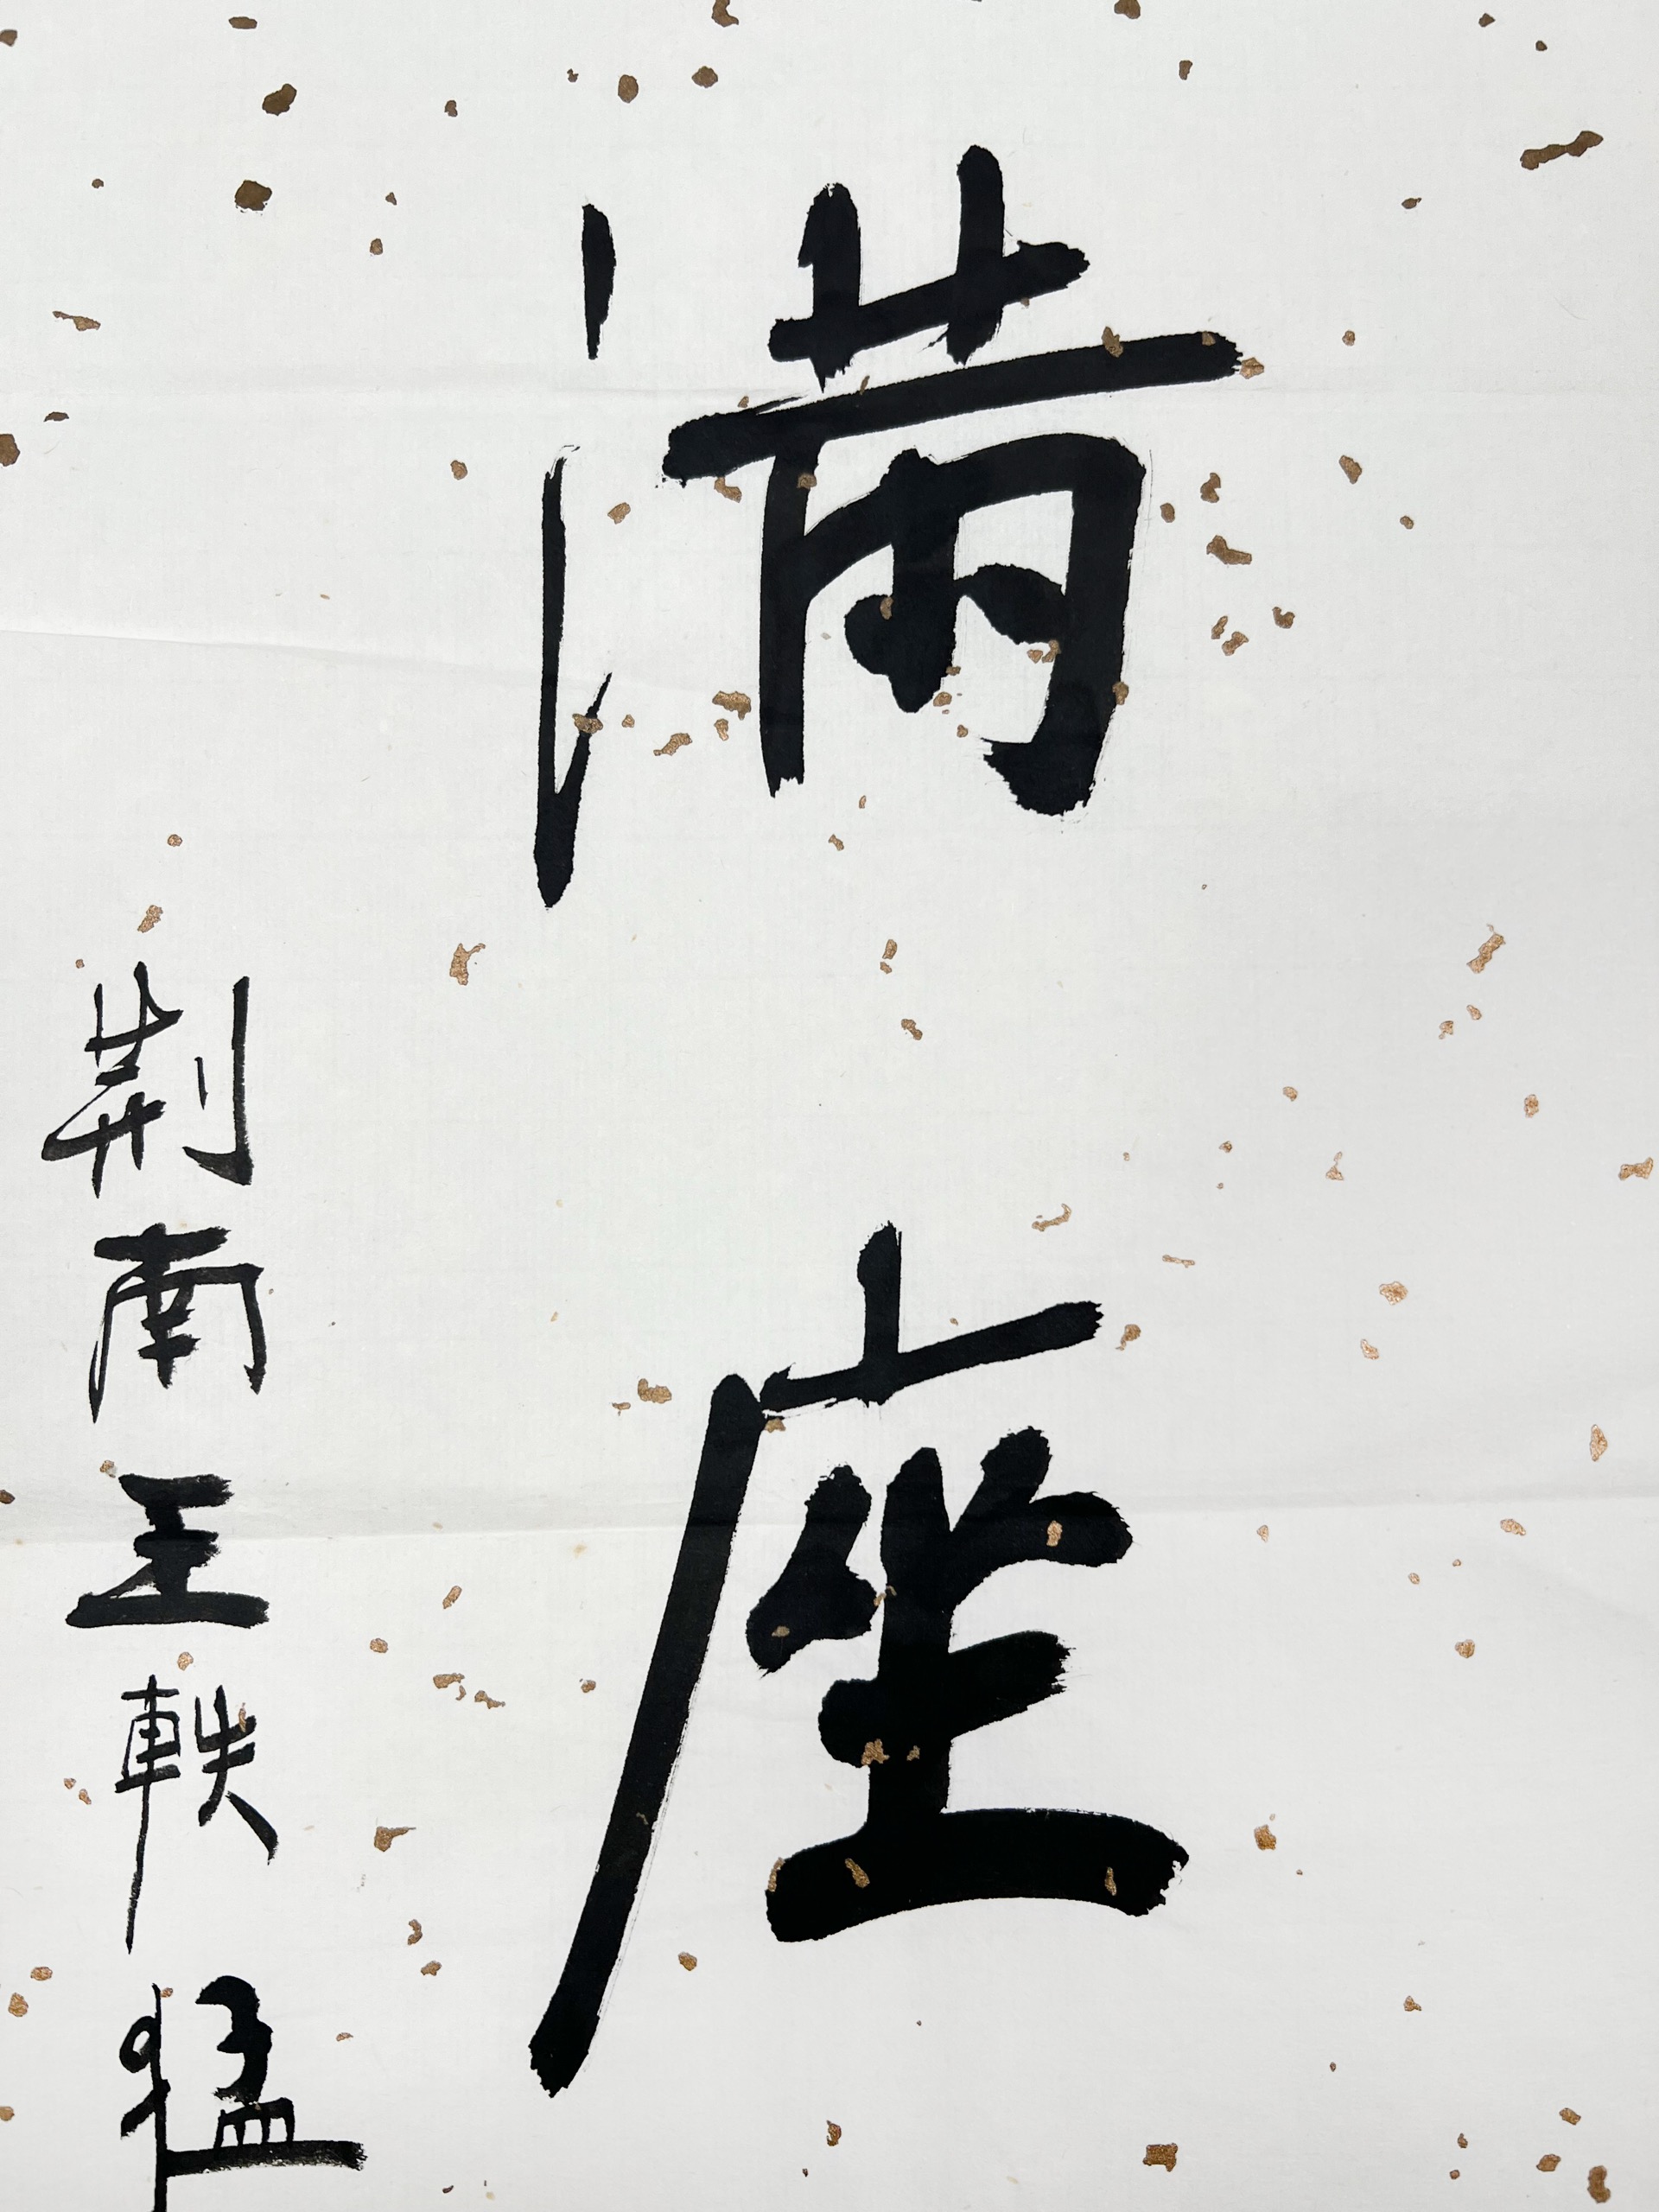 满座
荆南王軼猛